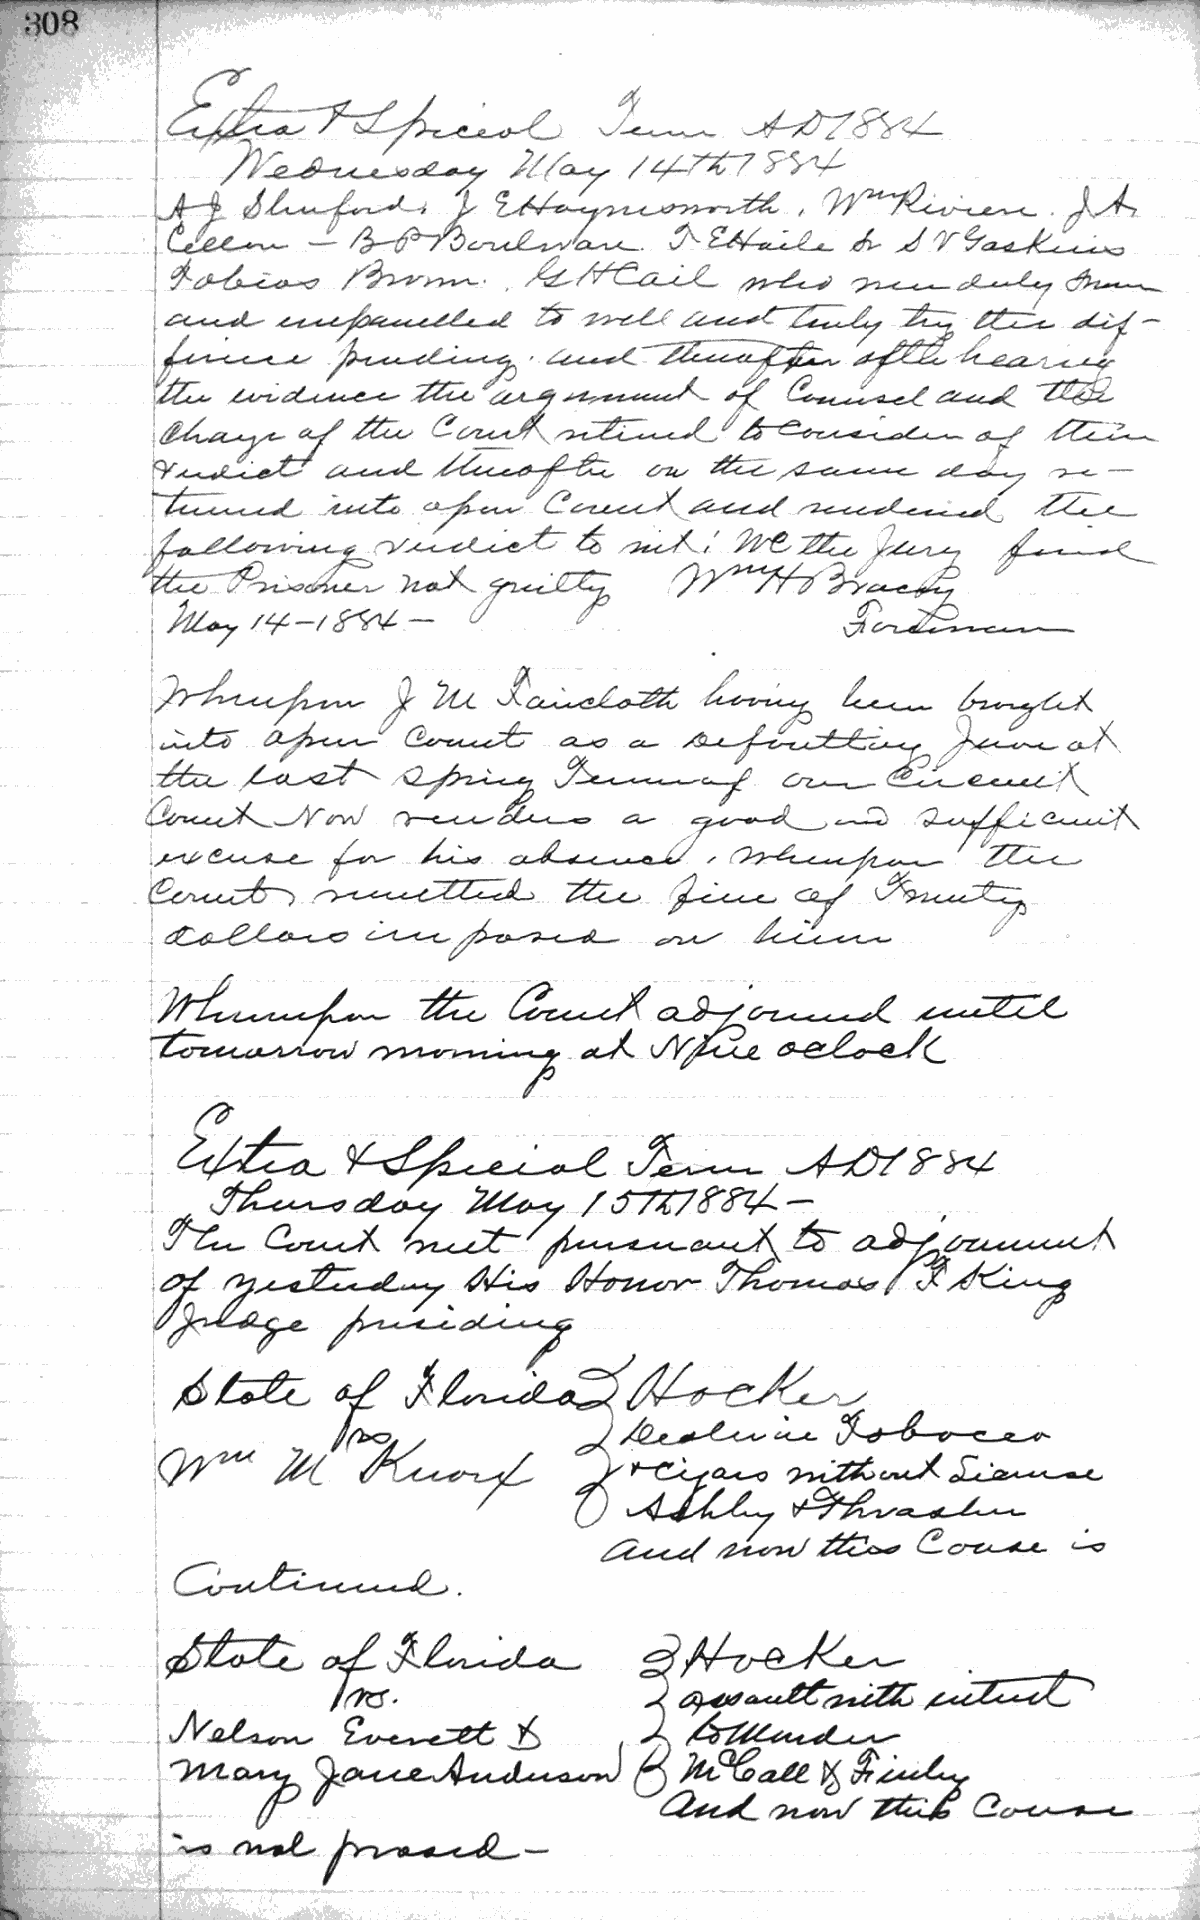 308
Extra & Special Term AD 1884
Wednesday May 14th 1884
A J Shuford. J E Haynesworth. Wm Riviere. J A.
Cellon - B P Boulware T E Haile Sr S V Gaskins
Tobias Brown. G H Cail who were duly sworn
and empanelled to well and truly try the dif-
ference pending. and thereafter after hearing
the evidence the argument of Counsel and the
charge of the Court retired to consider of their
verdict and thereafter on the same day re-
turned into open Court and rendered the
following verdict to wit: We the Jury find
the Prisoner not guilty Wm H Bracey
May 14-1884- Foreman
Whereupon J M Faircloth having been brought
into open Court as a Defaulting Juror at
the last Spring Term of our Circuit
Court Now renders a good and sufficient
excuse for his absence, whereupon the
Court remitted the fine of Twenty
dollars imposed on him
Whereupon the Court adjourned until
tomorrow morning at Nine oclock
Extra & Special Term AD 1884
Thursday May 15th 1884-
The Court met pursuant to adjournment
of yesterday His Honor Thomas F King
Judge presiding
State of Florida Hocker
vs Dealing in Tobacco
Wm M Knox & Cigars without License
Ashby & Thrasher
And now this Cause is
Continued.
State of Florida Hocker
vs. assault with intent
Nelson Everett & to Murder
Mary Jane Anderson McCall & Finley
And now this Cause
is nol prosed-